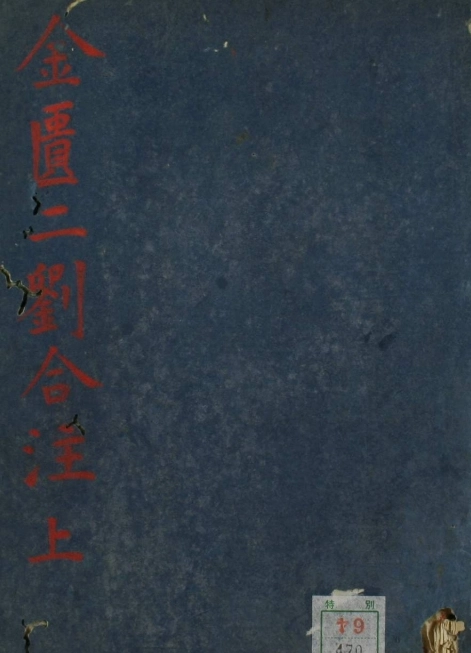 金匱二劉合注上
特別
470